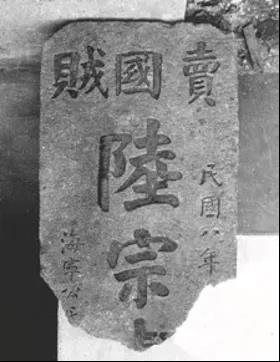 賣國賊
民國八年
陸宗
海寧公